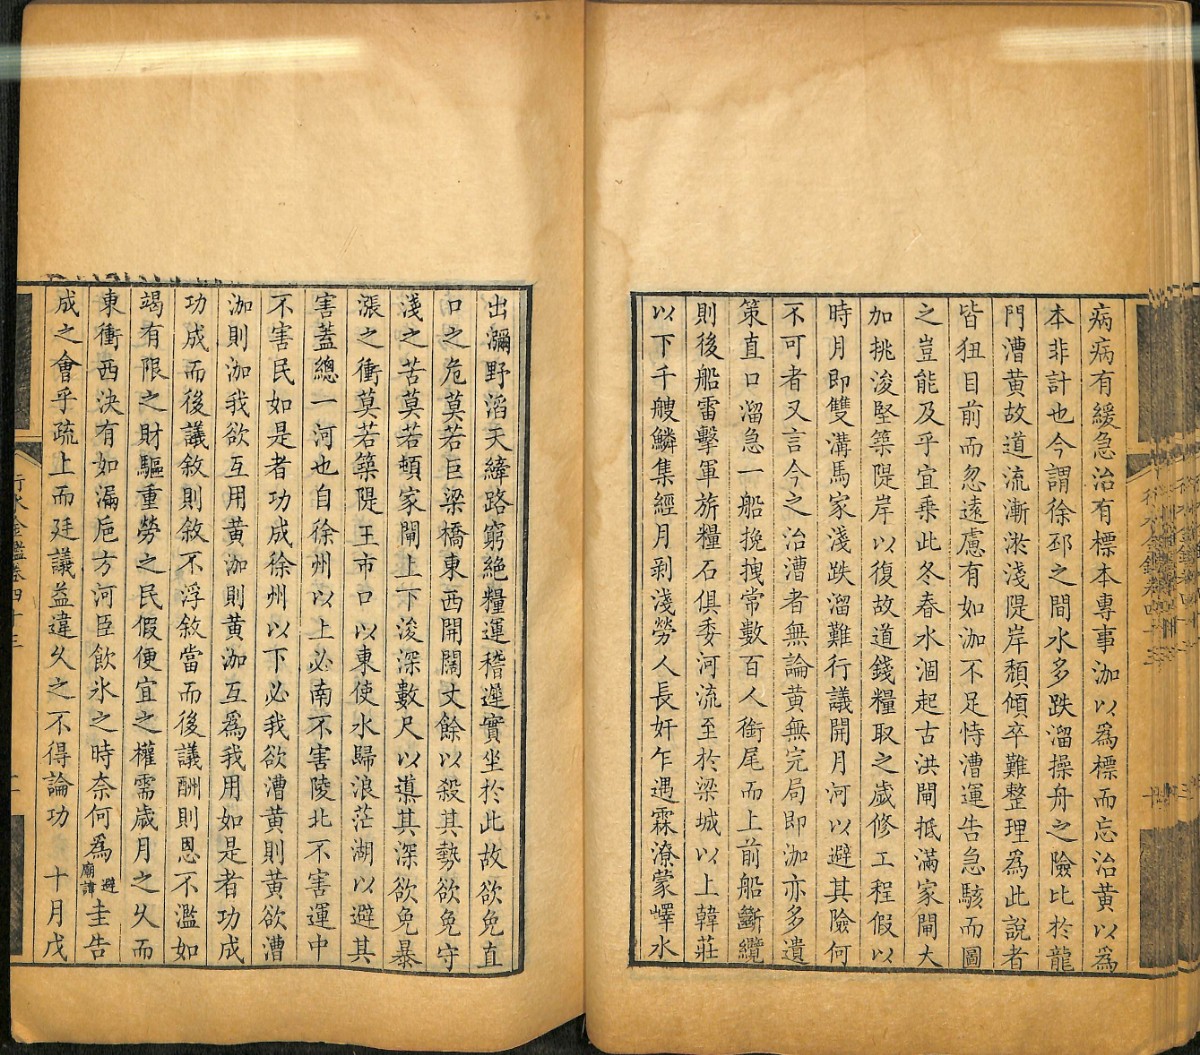 病病有緩急治有標本專事泇以爲標而忘治黃以爲
本非計也今謂徐邳之間水多跌溜操舟之險比於龍
門漕黃故道流漸淤淺隄岸頽傾卒難整理爲此說者
皆狃目前而忽遠慮有如泇不足恃漕運告急駭而圖
之豈能及乎宜乘此冬春水涸起古洪閘抵滿家閘大
加挑浚堅築隄岸以復故道錢糧取之歲修工程假以
時月即雙溝馬家淺跌溜難行議開月河以避其險何
不可者又言今之治漕者無論黃無完局即泇亦多遺
策直口溜急一船挽拽常數百人銜尾而上前船斷纜
則後船雷擊軍旂糧石俱委河流至於梁城以上韓莊
以下千艘鱗集經月剥淺勞人長奸乍遇霖潦蒙嶧水
出瀰野滔天縴路窮絶糧運稽遲實坐於此故欲免直
口之危莫若巨梁橋東西開闊丈餘以殺其勢欲免守
淺之苦莫若頓家閘上下浚深數尺以導其深欲免暴
漲之衝莫若築隄王市口以東使水歸浪茫湖以避其
害蓋總一河也自徐州以上必南不害陵北不害運中
不害民如是者功成徐州以下必我欲漕黃則黃欲漕
泇則泇我欲互用黃泇則黃泇互爲我用如是者功成
功成而後議敘則敘不浮敘當而後議酬則恩不濫如
竭有限之財驅重勞之民假便宜之權需歲月之久而
東衝西決有如漏巵方河臣飲氷之時奈何爲避廟諱圭告
成之會乎疏上而廷議益違久之不得論功　十月戊
行水金鑑卷四十三